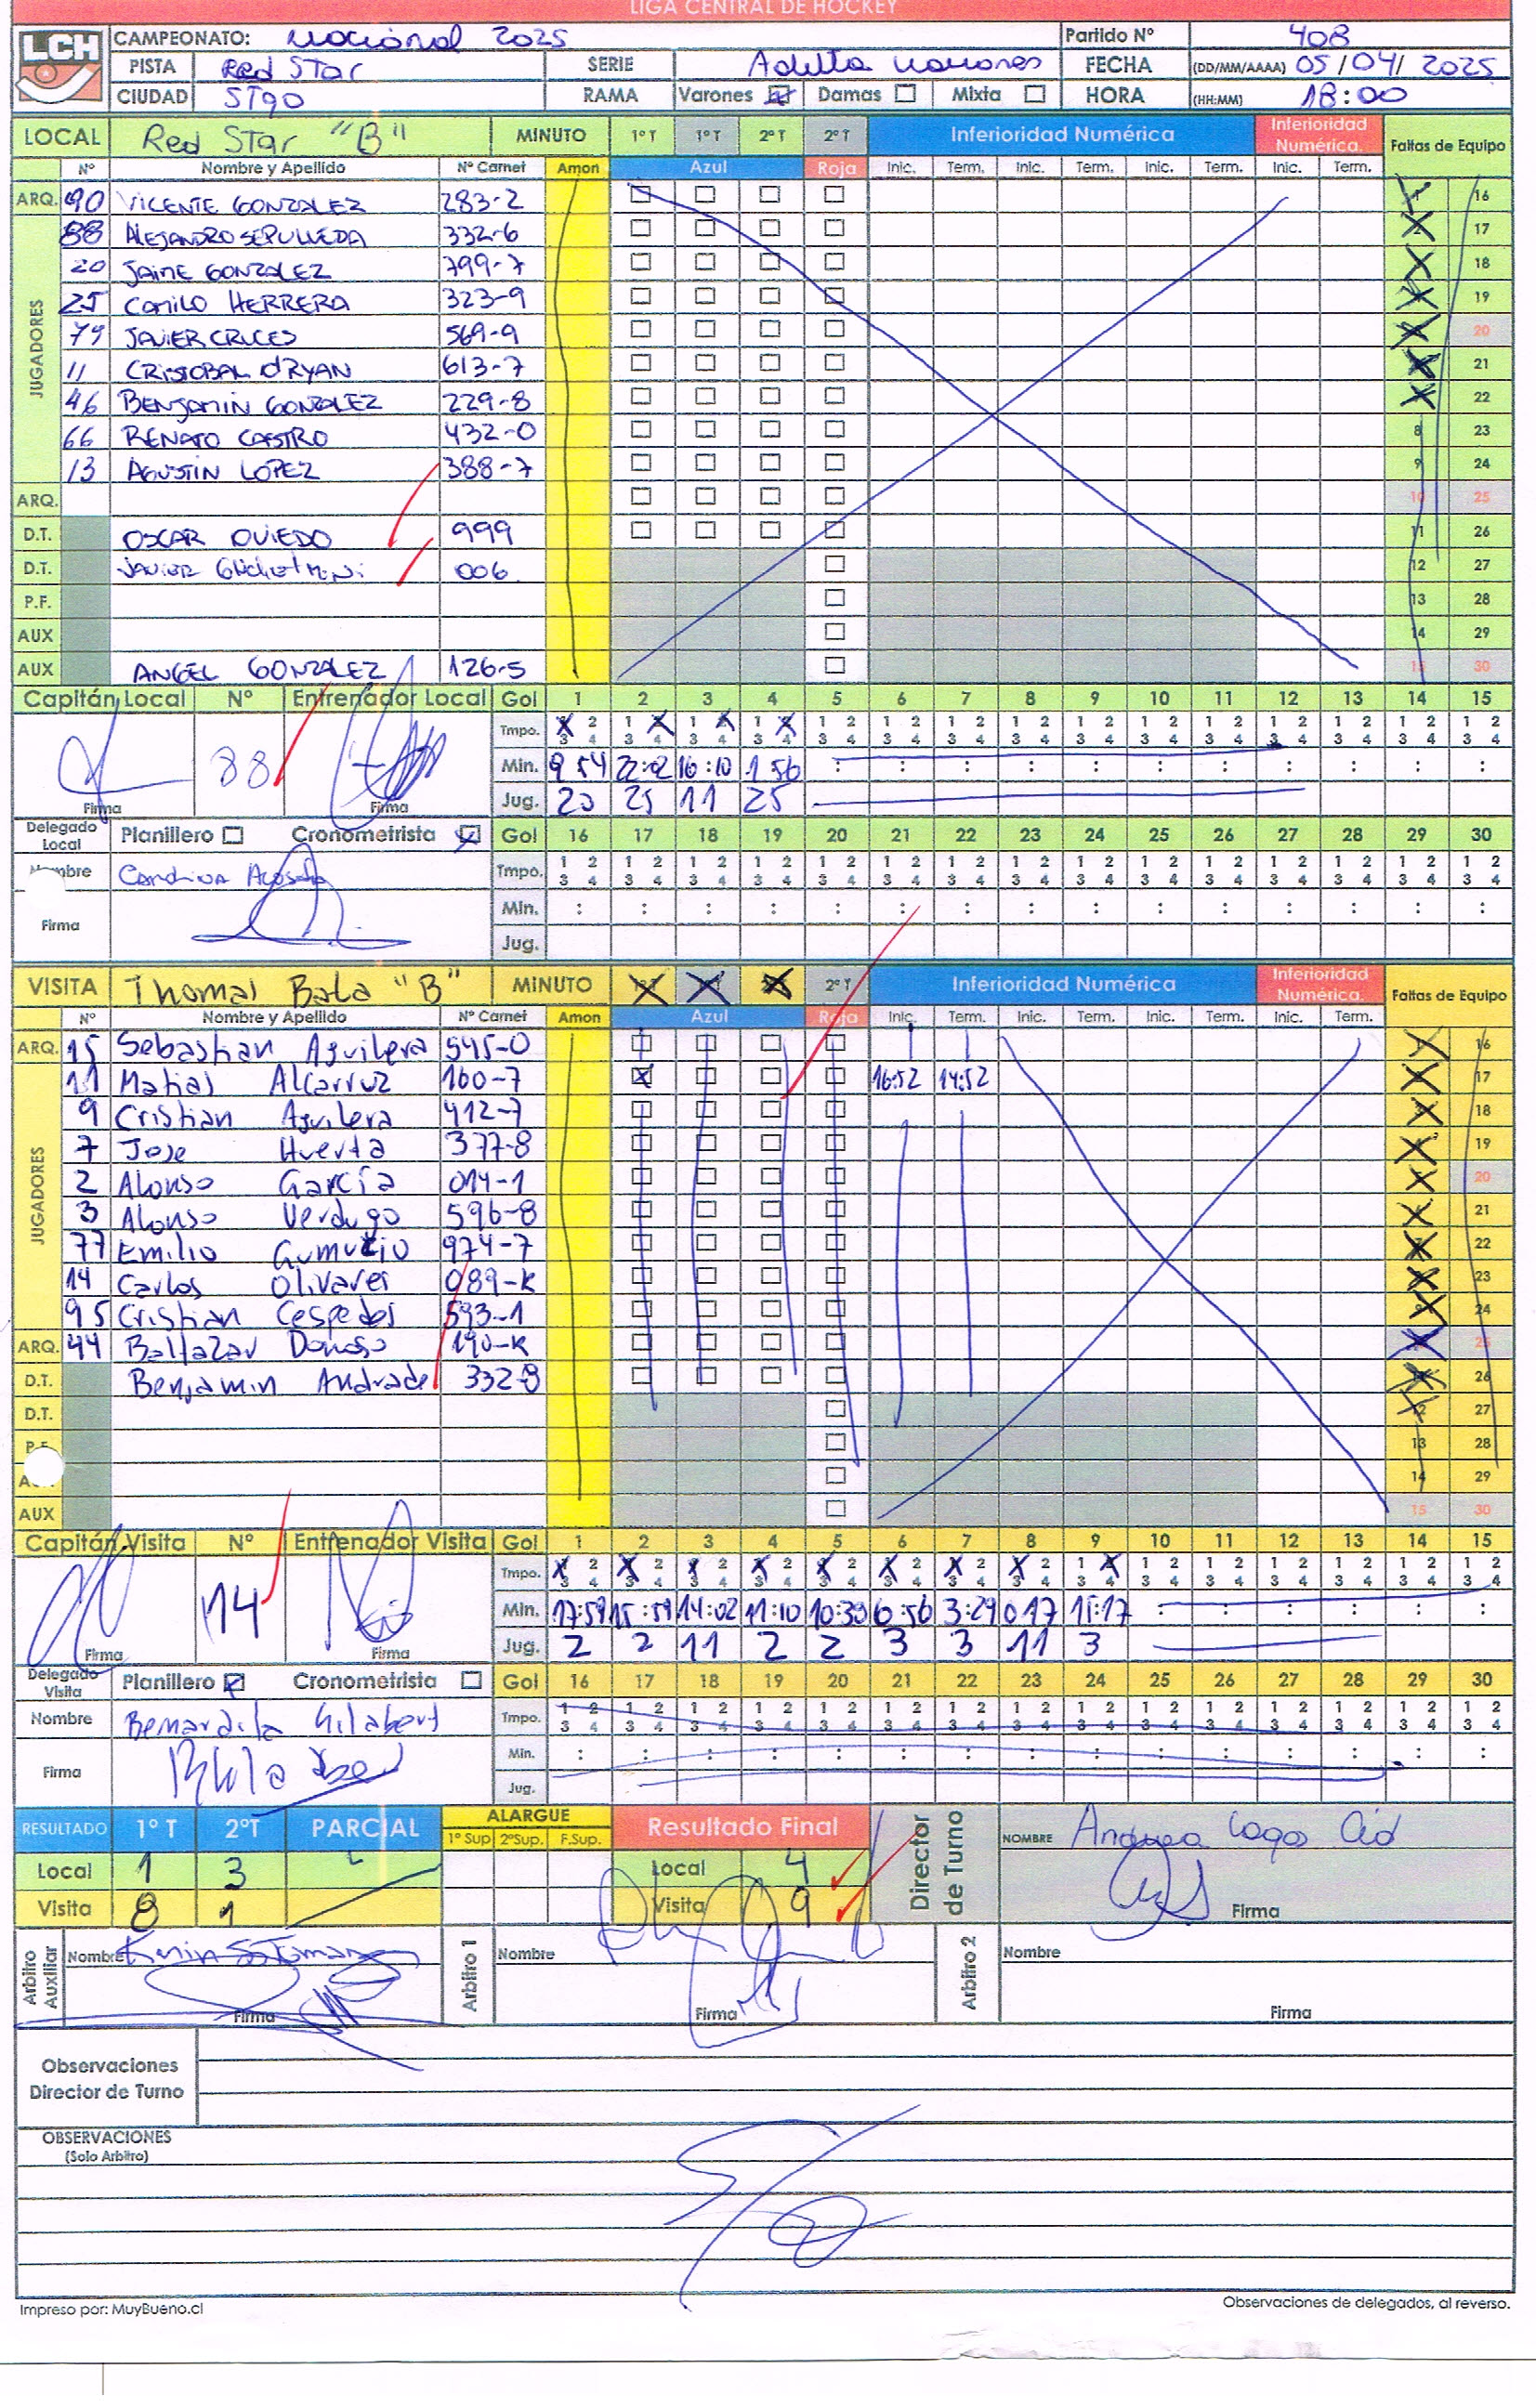 LIGA CENTRAL DE HOCKEY
LCH
CAMPEONATO: Nacional 2025 Partido Nº 408
PISTA Red Star SERIE Adulto FECHA (DD/MM/AAAA) 05/04/2025
CIUDAD STGO RAMA Varones Damas Mixta HORA (HH:MM) 18:00
LOCAL Red Star "B" MINUTO 1º T 1º T 2º T 2º T Inferioridad Numérica Inferioridad Numérica. Faltas de Equipo
Nº Nombre y Apellido Nº Carnet Amon Azul Roja Inic. Term. Inic. Term. Inic. Term. Inic. Term.
JUGADORES
ARQ. 90 VICENTE GONZALEZ 283-2 1 16
88 ALEJANDRO SEPULVEDA 332-6 2 17
20 JAIME GONZALEZ 799-7 18
25 CAMILO HERRERA 323-9 19
79 JAVIER CRUCES 569-9 20
11 CRISTOBAL O'RYAN 613-7 21
46 BENJAMIN GONZALEZ 229-8 22
66 RENATO CASTRO 432-0 8 23
13 AGUSTIN LOPEZ 388-7 9 24
ARQ. 10 25
D.T. OSCAR OVIEDO 999 11 26
D.T. JAVIER 006 12 27
P.F. 13 28
AUX 14 29
AUX ANGEL GONZALEZ 126-5 15 30
Capitán Local Nº Entrenador Local Gol 1 2 3 4 5 6 7 8 9 10 11 12 13 14 15
Tmpo. 1 2 3 4
88
Min. 9 54 22:02 16:10 1 56
Firma Firma Jug. 20 25 11 25
Delegado Local Planillero Cronometrista Gol 16 17 18 19 20 21 22 23 24 25 26 27 28 29 30
Nombre Carolina Acosta Tmpo. 1 2 3 4
Firma Min.
Jug.
VISITA Thomas Bata "B" MINUTO 2º T Inferioridad Numérica Inferioridad Numérica. Faltas de Equipo
Nº Nombre y Apellido Nº Carnet Amon Azul Roja Inic. Term. Inic. Term. Inic. Term. Inic. Term.
JUGADORES
ARQ. 15 Sebastian Aguilera 545-0 16
11 Matias Alcarruz 160-7 16:52 14:52 17
9 Cristian Aguilera 412-7 18
7 Jose Huerta 377-8 19
2 Alonso García 014-1 20
3 Alonso Verdugo 596-8 21
77 Emilio Gumucio 974-7 22
14 Carlos Olivares 089-K 23
95 Cristian Cespedes 593-1 24
ARQ. 44 Baltazar Donoso 190-K 25
D.T. Benjamin Andrade 332-8 26
D.T. 12 27
P.F. 13 28
14 29
AUX 15 30
Capitán Visita Nº Entrenador Visita Gol 1 2 3 4 5 6 7 8 9 10 11 12 13 14 15
Tmpo. 1 2 3 4
14
Min. 17:59 15:59 14:02 11:10 10:39 6:56 3:29 0 17 15:17
Firma Firma Jug. 2 2 11 2 2 3 3 11 3
Delegado Visita Planillero Cronometrista Gol 16 17 18 19 20 21 22 23 24 25 26 27 28 29 30
Nombre Bernardita Gilabert Tmpo. 1 2 3 4
Firma Min.
Jug.
RESULTADO 1º T 2ºT PARCIAL ALARGUE 1º Sup 2ºSup. F.Sup. Resultado Final Director de Turno NOMBRE Andrea Lagos Cid
Local 1 3 Local 4
Visita 8 1 Visita 9 Firma
Arbitro Auxiliar Nombre Arbitro 1 Nombre Arbitro 2 Nombre
Firma Firma Firma
Observaciones
Director de Turno
OBSERVACIONES
(Solo Arbitro)
Impreso por: MuyBueno.cl Observaciones de delegados, al reverso.